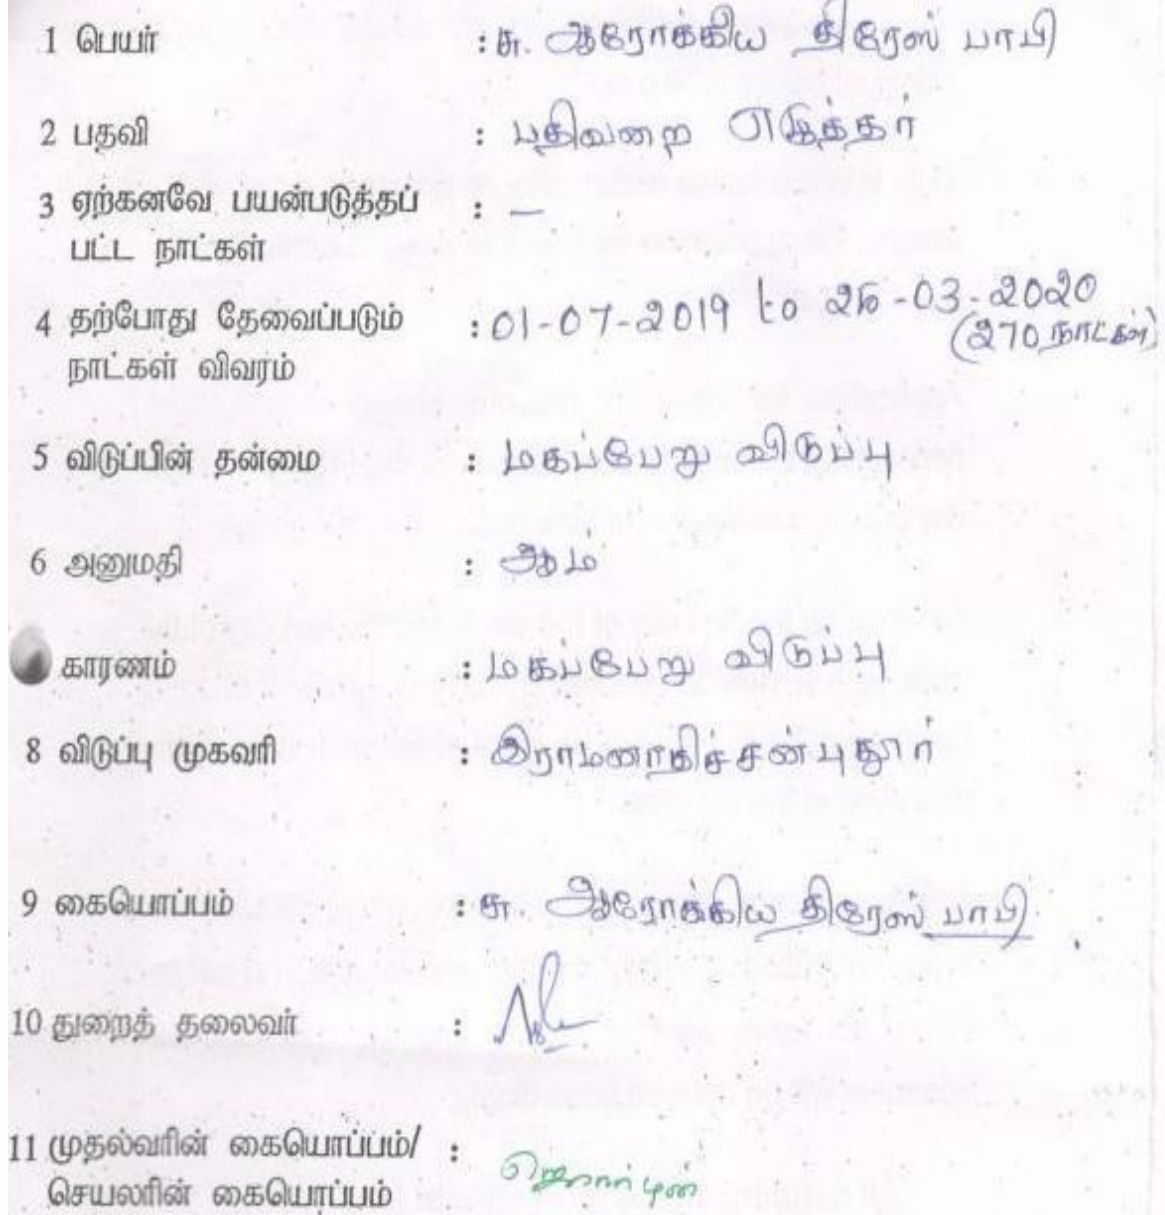 1 பெயர் : சு. ஆரோக்கிய திரேஸ் பாபி
2 பதவி : பதிவறை எழுத்தர்
3 ஏற்கனவே பயன்படுத்தப் : –
பட்ட நாட்கள்
4 தற்போது தேவைப்படும் : 01-07-2019 to 26-03-2020
நாட்கள் விவரம் (270 நாட்கள்)
5 விடுப்பின் தன்மை : மகப்பேறு விடுப்பு
6 அனுமதி : ஆம்
காரணம் : மகப்பேறு விடுப்பு
8 விடுப்பு முகவரி : இராமனாதிச்சன்புதூர்
9 கையொப்பம் : சு. ஆரோக்கிய திரேஸ் பாபி
10 துறைத் தலைவர் :
11 முதல்வரின் கையொப்பம்/ :
செயலரின் கையொப்பம்